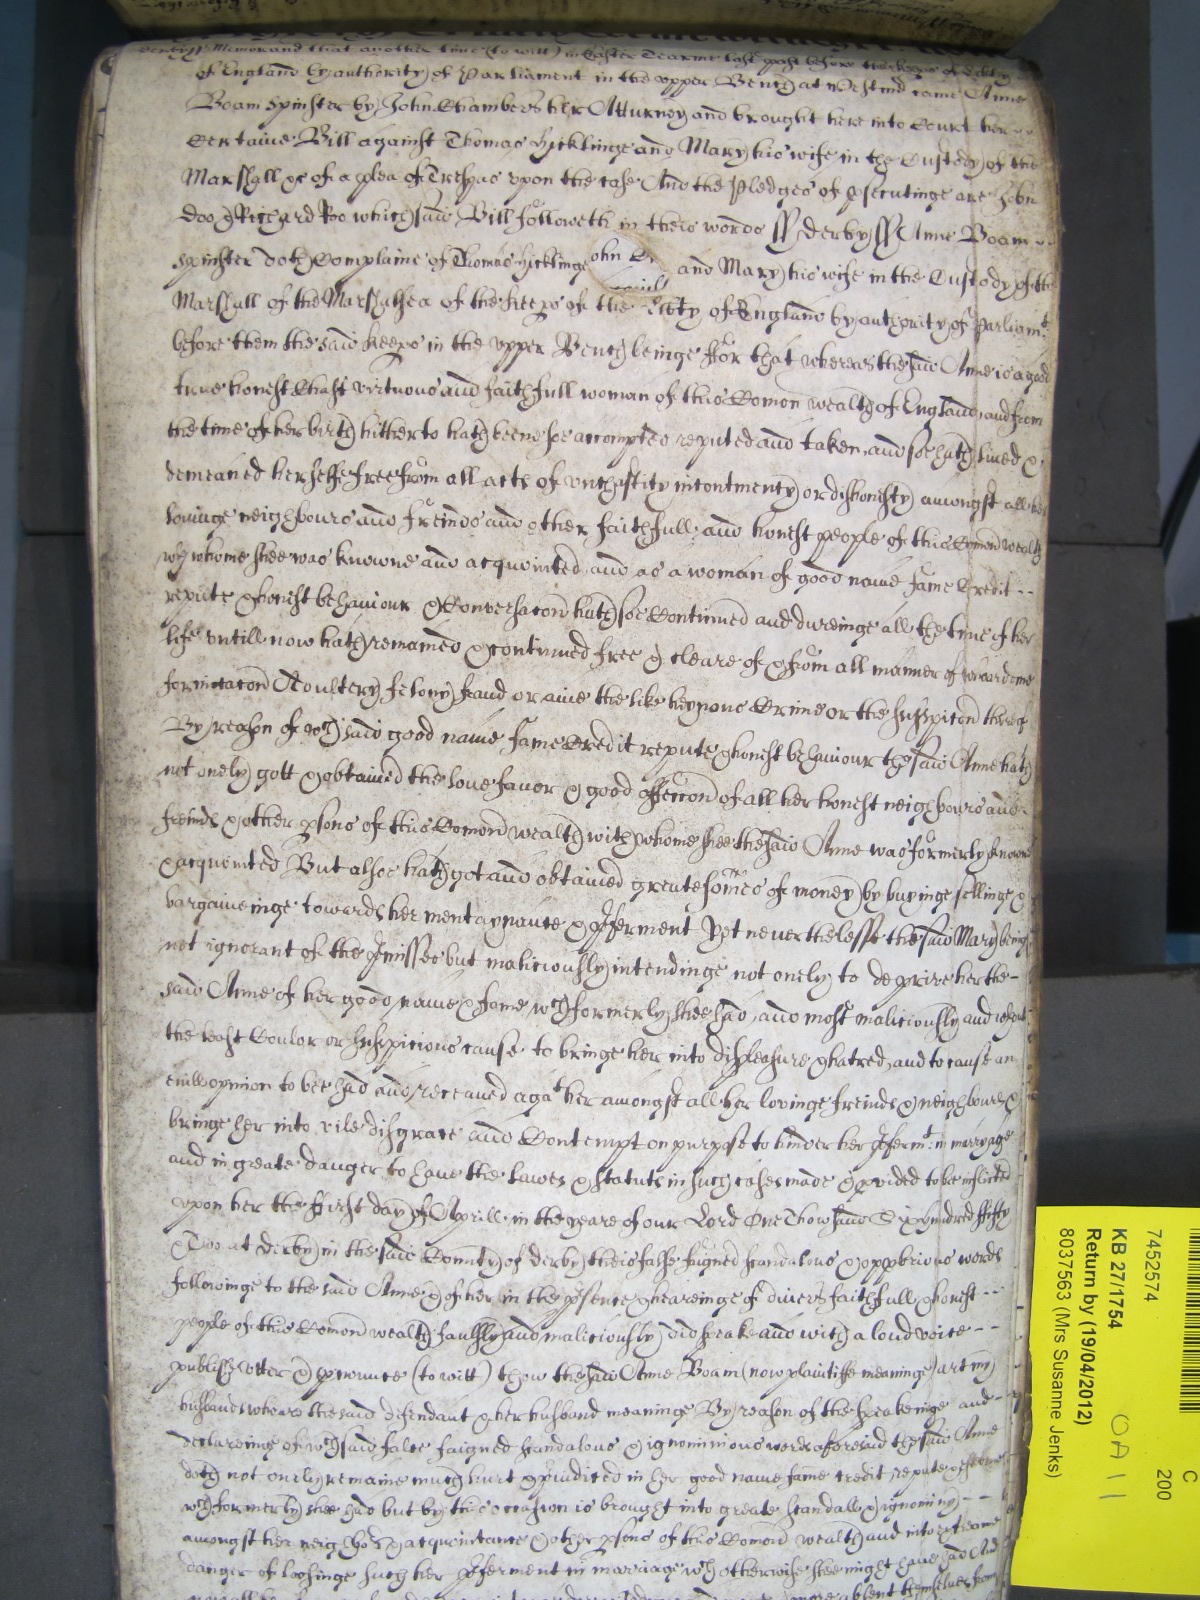 Memorand that another time (to witt) in Easter Tearme last past before the keeps of the libty
of England by authority of Parliament in the upper Bench at Westm̃ came Anne
Boam Spinster by John Chambers her Atturney and brought here into Court her
certaine Bill against Thomas Hicklinge and Mary his wife in the Custody of the
Marshall &c of a plea of Trespas upon the case And the Pledges of psecutinge are John
Doo & Richard Roo which said Bill followeth in theis words ss Derby ss Anne Boam
spinster doth Complaine of Thomas Hicklinge and Mary his wife in the Custody of the
Marshall of the Marshalsea of the keeps of the Libty of England by authority of Parliamt
before them the said keeps in the upper Bench beinge ffor that whereas the said Anne is a good
true honest Chast virtuous and faithfull woman of this Comon wealth of England and from
the time of her birth hitherto hath beene soe accompted reputed and taken, and soe hath lived &
demeaned her selfe free from all acts of unchastity incontinency or dishonesty amongst all her
lovinge neighbours and freinds and other faithfull and honest people of this Comon wealth
wth whome shee was knowne and acquainted, and as a woman of good name fame Credit
repute & honest behaviour & Conversacon hath soe Continued and dureinge all the time of her
life untill now hath remained & continued free & cleare of & from all manner of whoardome
fornicacon Adoultery felony fraud or anie the like heynous Crime or the suspicon thereof
By reason of wch said good name fame Credit repute & honest behaviour the said Anne hath
not onely gott & obtained the love favor & good affeccon of all her honest neighbours and
freinds & other psons of this Comon wealth with whome shee the said Anne was formerly knowne
& acquainted But alsoe hath got and obtained greate somes of money by buyinge sellinge &
bargaineinge towards her mentaynance & pferment Yet neverthelesse the said Mary being
not ignorant of the pmisses but maliciously intendinge not onely to deprive her the
said Anne of her good name & fame wch formerly shee had, and most maliciously and wthout
the least Coulor or suspicious cause to bringe her into displeasure & hatred, and to cause an
evill opinion to bee had and receaved agat her amongst all her lovinge freinds & neighbours &
bringe her into vile disgrace and Contempt on purpose to hinder her pfermt in marryage
and in greate danger to have the lawes & statuts in such cases made & pvided to be inflicted
upon her the ffirst day of Aprill in the yeare of our Lord One Thowsand Six hundred ffifty
& Two at Derby in the said County of Derby theis false faigned scandalous & opprbrious words
followinge to the said Anne & of her in the psence & heareinge of divers faithfull & honest
people of this Comon wealth faulsly and maliciously did speake and with a loud voice
publish utter & pnounce (to witt) thow the said Anne Boam (now plaintiffe meaninge) art my
husbands whore the said defendant & her husband meaninge By reason of the speakeinge and
declareinge of wch said false faigned scandalous & ignominious words aforesaid the said Anne
doth not onely remaine much hurt & pjudiced in her good name fame credit repute & esteeme
wch formerly shee had but by this occasion is brought into greate scandall & ignominy
amongst her neighbors & acquaintance & other psons of this Comon wealth and into extreame
danger of loosinge such her pferment in marriage wch otherwise shee might have had And
KB 27/1754
Return by (19/04/2012)
8037563 (Mrs Susanne Jenks)
7452574
C
200
OA 11